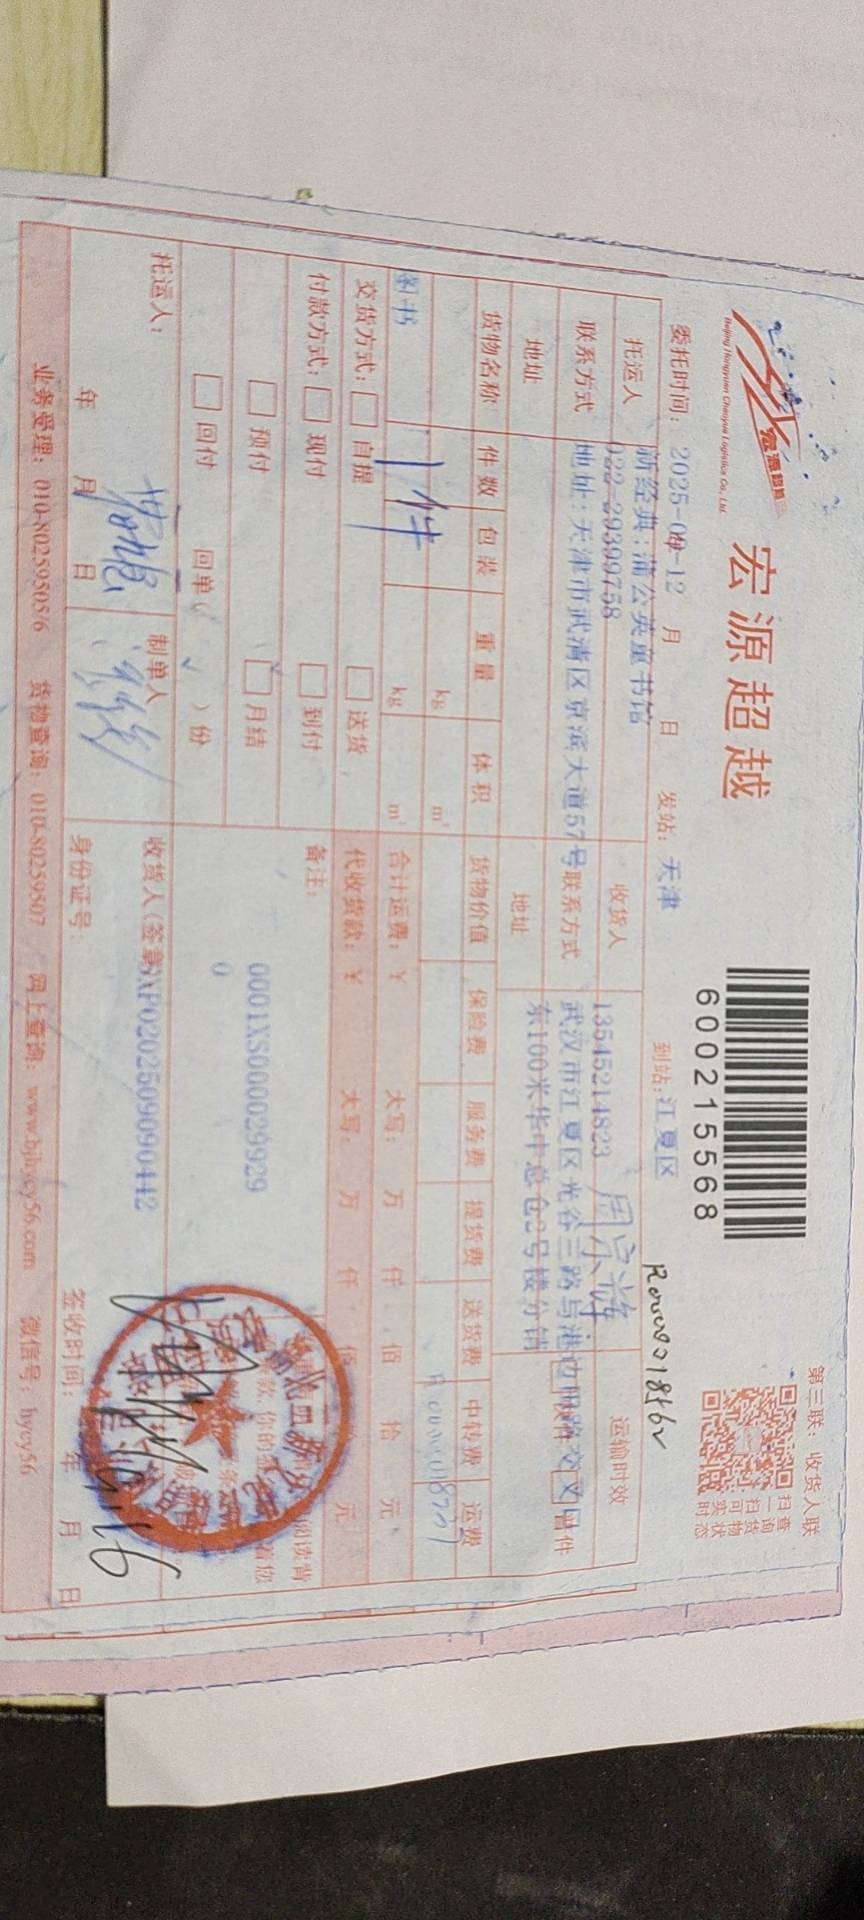 宏源超越
Beijing Hongyuan Chaoyue Logistics Co., Ltd.
宏源超越
6002155568
第三联：收货人联
扫一扫
查询货物
可实时状态
委托时间：2025-09-12 月 日 发站：天津 到站：江夏区
托运人 新经典：蒲公英童书馆 收货人 周宗辉 运输时效
022-29399758
13545214823
联系方式 地址：天津市武清区京滨大道57号 联系方式 武汉市江夏区光谷三路与港边田路交叉口
地址 地址 东100米华中总仓2号楼分销
货物名称 件数 包装 重量 体积 货物价值 保险费 服务费 提货费 送货费 中转费 运费
kg m³
图书 1件 kg m³ 合计运费：￥ 大写： 万 仟 佰 拾 元
交货方式：□ 自提 □ 送货 代收货款：￥ 大写： 万 仟 佰 元
付款方式：□ 现付 □ 到付 备注：
□ 预付 □ 月结 0001XS000029929
□ 回付 回单（ ）份 0
托运人： 制单人 收货人（签章 SXP0202509090442
年 月 日 身份证号： 签收时间： 年 月 日
业务受理：010-80259505/6 货物查询：010-80259507 网上查询：www.bjhycy56.com 微信号：hycy56